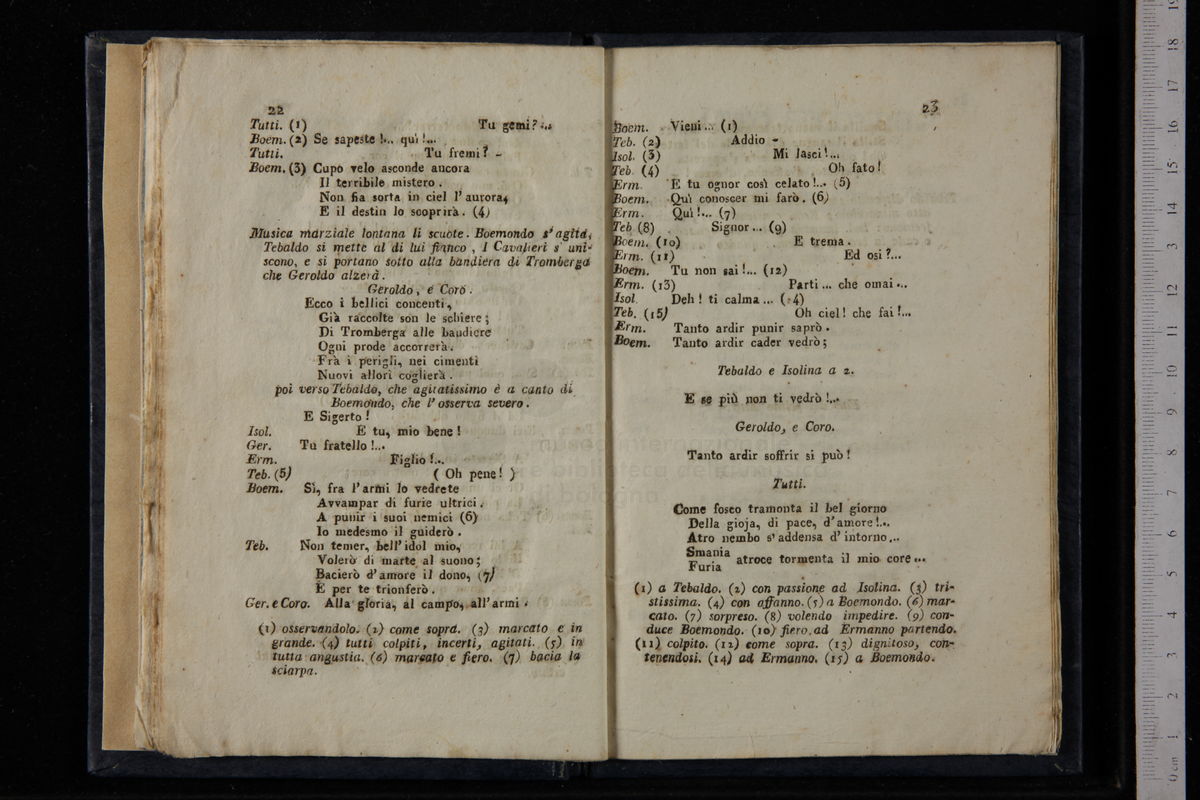 22
Tutti. (1) Tu gemi?...
Boem. (2) Se sapeste!... quì!...
Tutti. Tu fremi? -
Boem. (3) Cupo velo asconde ancora
Il terribile mistero.
Non fia sorta in ciel l'aurora,
E il destin lo scoprirà. (4)
Musica marziale lontana li scuote. Boemondo s'agita,
Tebaldo si mette al di lui fianco, I Cavalieri s'uni-
scono, e si portano sotto alla bandiera di Tromberga
che Geroldo alzerà.
Geroldo, e Coro.
Ecco i bellici concenti,
Già raccolte son le schiere;
Di Tromberga alle bandiere
Ogni prode accorrerà.
Frà i perigli, nei cimenti
Nuovi allori coglierà.
poi verso Tebaldo, che agitatissimo è a canto di
Boemondo, che l'osserva severo.
E Sigerto!
Isol. E tu, mio bene!
Ger. Tu fratello!...
Erm. Figlio!...
Teb. (5) (Oh pene!)
Boem. Sì, fra l'armi lo vedrete
Avvampar di furie ultrici.
A punir i suoi nemici (6)
Io medesmo il guiderò.
Teb. Non temer, bell'idol mio,
Volerò di marte al suono;
Bacierò d'amore il dono, (7)
E per te trionferò.
Ger. e Coro. Alla gloria, al campo, all'armi.
(1) osservandolo. (2) come sopra. (3) marcato e in
grande. (4) tutti colpiti, incerti, agitati. (5) in
tutta angustia. (6) marcato e fiero. (7) bacia la
sciarpa.
23
Boem. Vieni... (1)
Teb. (2) Addio -
Isol. (3) Mi lasci!...
Teb. (4) Oh fato!
Erm. E tu ognor così celato!... (5)
Boem. Quì conoscer mi farò. (6)
Erm. Quì!... (7)
Teb (8) Signor... (9)
Boem. (10) E trema.
Erm. (11) Ed osi?...
Boem. Tu non sai!... (12)
Erm. (13) Parti... che omai...
Isol. Deh! ti calma... (14)
Teb. (15) Oh ciel! che fai!...
Erm. Tanto ardir punir saprò.
Boem. Tanto ardir cader vedrò;
Tebaldo e Isolina a 2.
E se più non ti vedrò!...
Geroldo, e Coro.
Tanto ardir soffrir si può!
Tutti.
Come fosco tramonta il bel giorno
Della gioja, di pace, d'amore!...
Atro nembo s'addensa d'intorno...
Smania
Furia atroce tormenta il mio core...
(1) a Tebaldo. (2) con passione ad Isolina. (3) tri-
stissima. (4) con affanno. (5) a Boemondo. (6) mar-
cato. (7) sorpreso. (8) volendo impedire. (9) con-
duce Boemondo. (10) fiero. ad Ermanno partendo.
(11) colpito. (12) come sopra. (13) dignitoso, con-
tenendosi. (14) ad Ermanno. (15) a Boemondo.